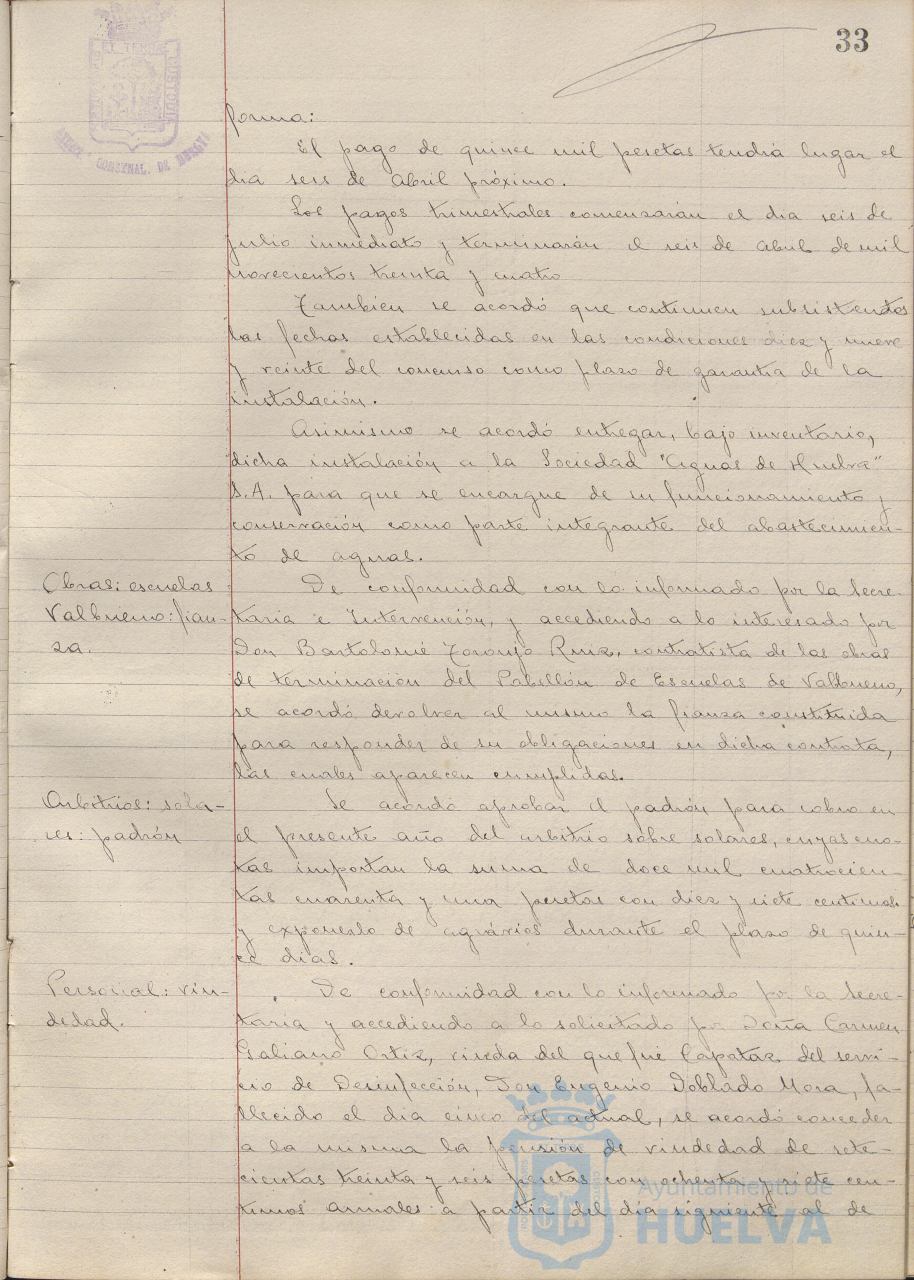 33
forma:
El pago de quince mil pesetas tendrá lugar el
dia seis de Abril próximo.
Los pagos trimestrales comenzarán el dia seis de
julio inmediato y terminarán el seis de Abril de mil
novecientos treinta y cuatro
Tambien se acordó que continuen subsistentes
las fechas establecidas en las condiciones diez y nueve
y veinte del concurso como plazo de garantia de la
instalación.
Asimismo se acordó entregar, bajo inventario,
dicha instalación a la Sociedad "Aguas de Huelva"
S.A. para que se encargue de su funcionamiento y
conservación como parte integrante del abastecimien-
to de aguas.
Obras: escuelas
Valbueno: fian-
za.
De conformidad con lo informado por la Secre-
taria e Intervención, y accediendo a lo interesado por
Don Bartolomé Toronjo Ruiz, contratista de las obras
de terminación del Pabellón de Escuelas de Valbueno,
se acordó devolver al mismo la fianza constituida
para responder de su obligaciones en dicha contrata,
las cuales aparecen cumplidas.
Arbitrios: sola-
res: padrón
Se acordó aprobar el padrón para cobro en
el presente año del arbitrio sobre solares, cuyas cuo-
tas importan la suma de doce mil cuatrocien-
tas cuarenta y una pesetas con diez y siete centimos
y exponerlo de agravios durante el plazo de quin-
ce dias.
Personal: viu-
dedad.
De conformidad con lo informado por la Secre-
taria y accediendo a lo solicitado por Doña Carmen
Galiano Ortiz, viuda del que fué Capataz del servi-
cio de Desinfección, Don Eugenio Doblado Mora, fa-
llecido el dia cinco del actual, se acordó conceder
a la misma la pensión de viudedad de sete-
cientas treinta y seis pesetas con ochenta y siete cen-
timos anuales a partir del dia siguiente al de
Ayuntamiento de
HUELVA